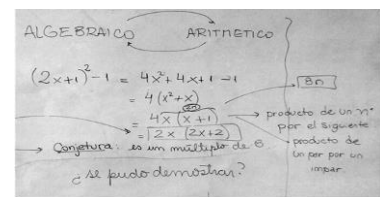 ALGEBRAICO ARITMETICO
(2x+1)²-1 = 4x²+4x+1-1
= 4(x²+x) 8n
= 4x(x+1) → producto de un nº
por el siguiente
= 2x (2x+2) producto de
un par por un
impar.
→ Conjetura: es un múltiplo de 8
¿se pudo demostrar?